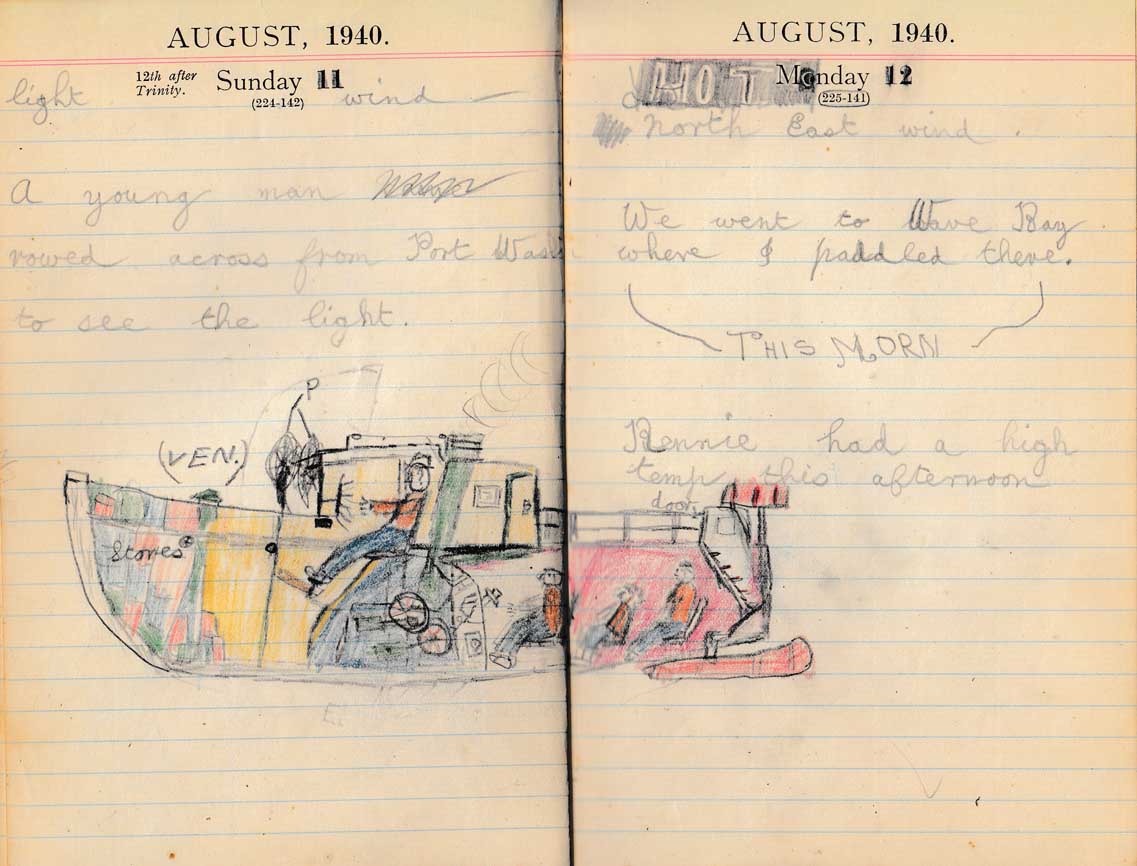 AUGUST, 1940.
12th after Trinity.
Sunday 11
(224-142)
light wind —
A young man
rowed across from Port Wash
to see the light.
P
(VEN.)
Stores
AUGUST, 1940.
HOT
Monday 12
(225-141)
North East wind.
We went to Wave Bay
where I paddled there.
THIS MORN
Rennie had a high
temp this afternoon
door